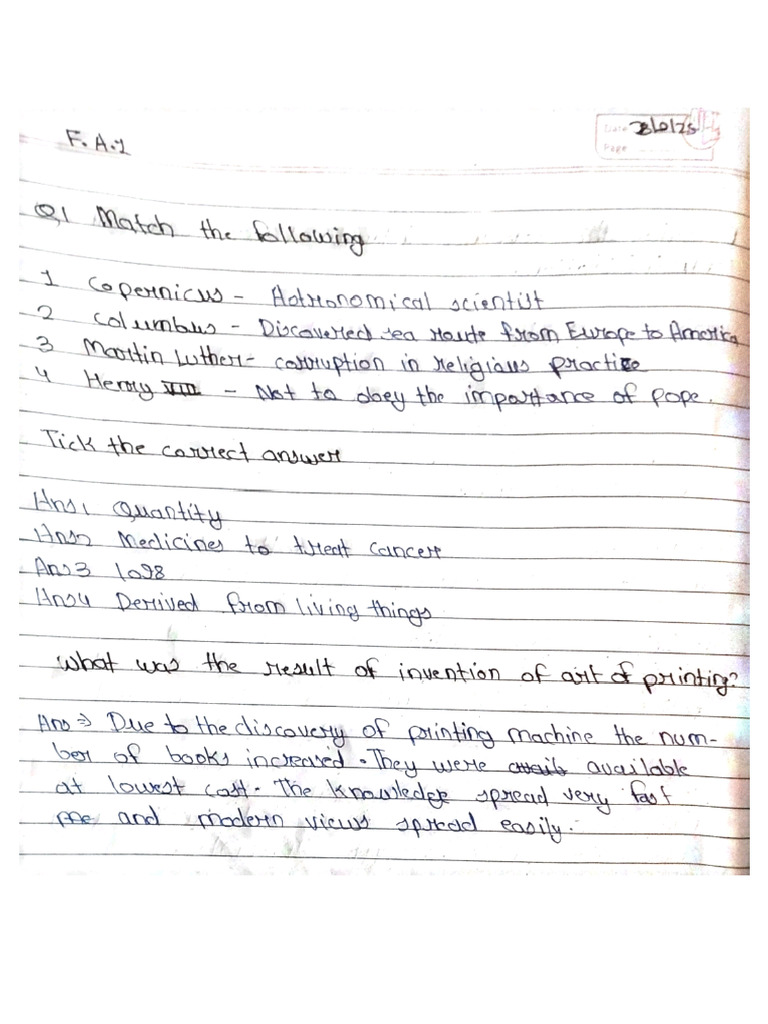 F.A.1
Date
Page
Q1 Match the following
1 Copernicus - Astronomical scientist
2 Columbus - Discovered sea route from Europe to America
3 Martin Luther - corruption in religious practice
4 Henry VIII - Not to obey the importance of pope.
Tick the correct answer
Ans1 Quantity
Ans2 Medicines to treat Cancer
Ans3 1098
Ans4 Derived from living things
What was the result of invention of art of printing?
Ans ⇒ Due to the discovery of printing machine the num-
ber of books increased. They were available
at lowest cost. The knowledge spread very fast
and modern views spread easily.